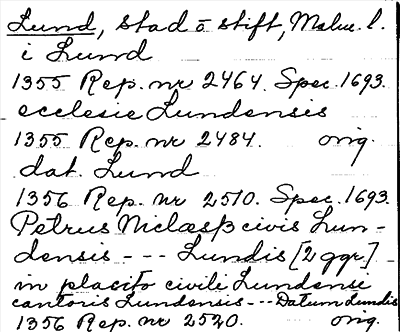 Lund, stad o stift, Malm. l.
i Lund
1355 Rep. nr 2464. Spec. 1693.
ecclesie Lundensis
1355 Rep. nr 2484. orig.
dat. Lund
1356 Rep. nr 2510. Spec. 1693.
Petrus Niclæsß civis Lun-
densis --- Lundis [2 ggr]
in placito civili Lundensi
cantoris Lundensis --- Datum Lundis
1356 Rep. nr 2520. orig.